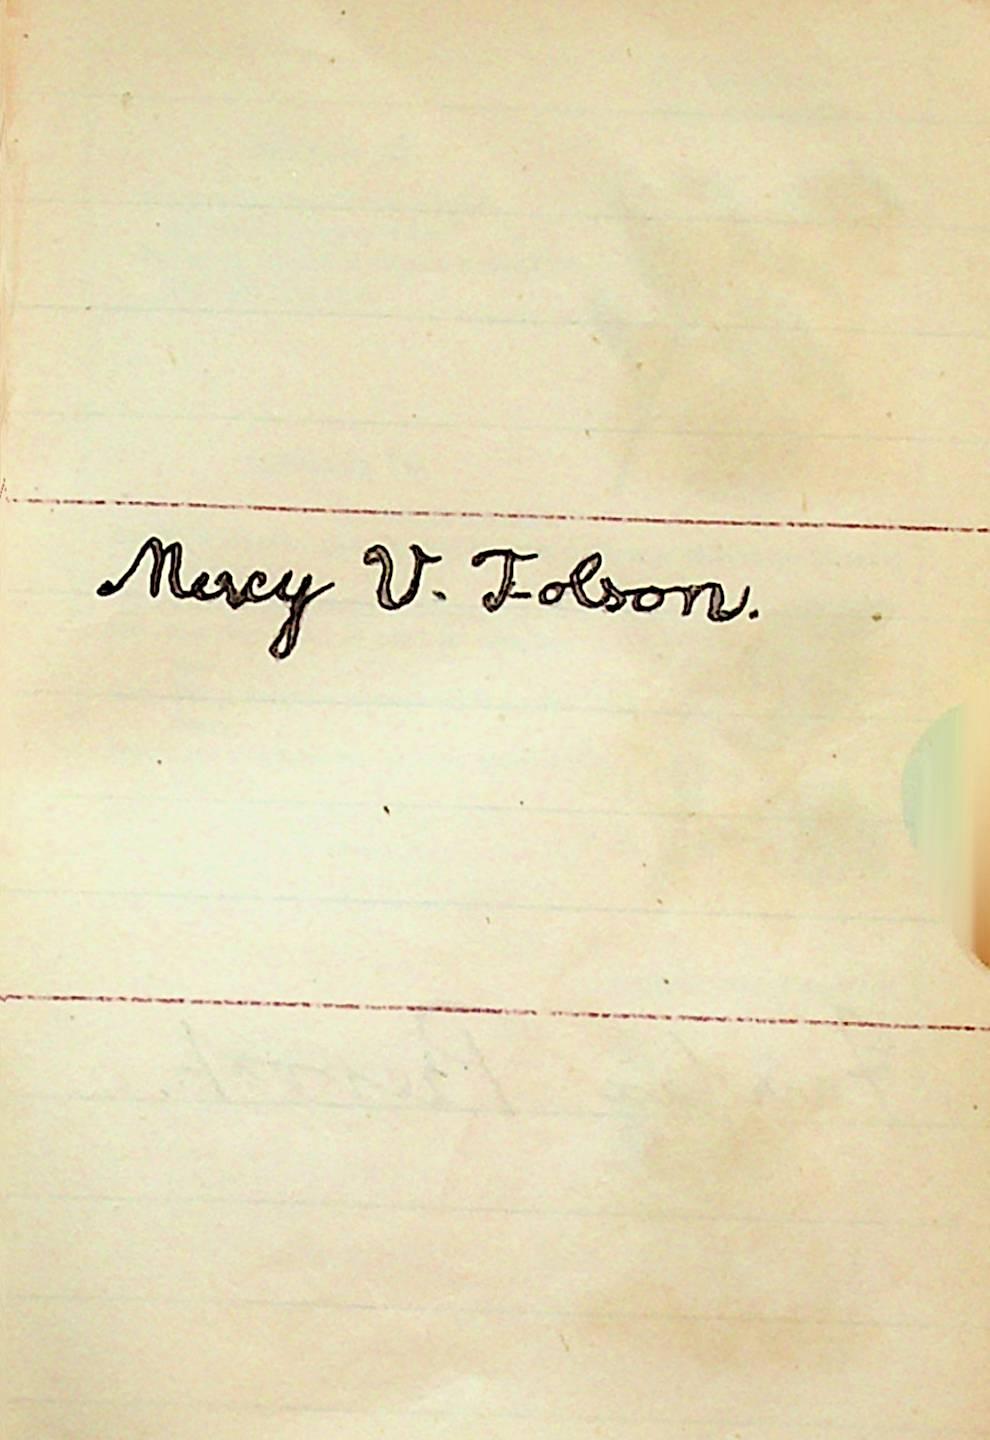 Mercy V. Folson.